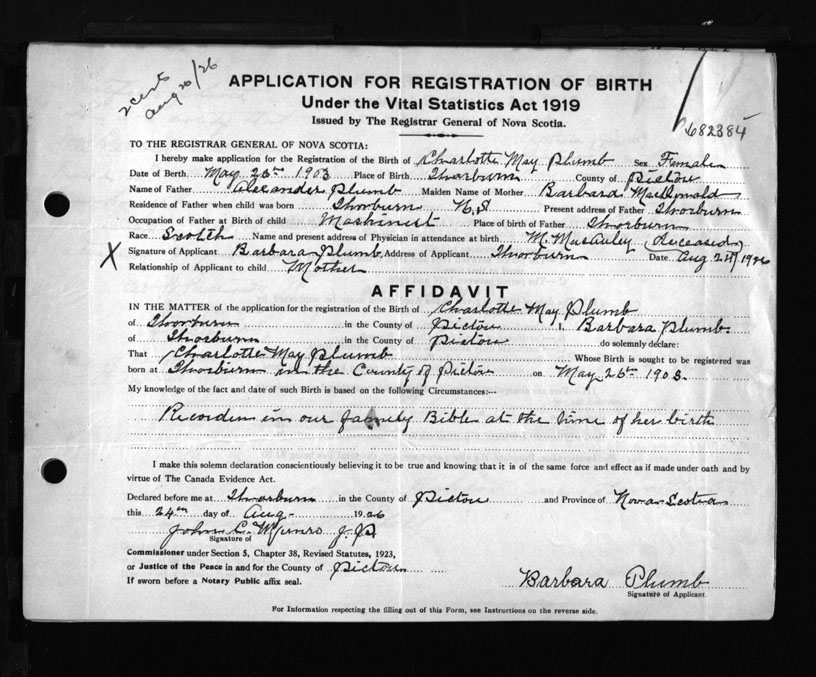 2 certs
Aug 20/26
682384
APPLICATION FOR REGISTRATION OF BIRTH
Under the Vital Statistics Act 1919
Issued by The Registrar General of Nova Scotia.
TO THE REGISTRAR GENERAL OF NOVA SCOTIA:
I hereby make application for the Registration of the Birth of Charlotte May Plumb Sex Female
Date of Birth May 25th 1903 Place of Birth Thorburn County of Pictou
Name of Father Alexander Plumb Maiden Name of Mother Barbara MacDonald
Residence of Father when child was born Thorburn N.S Present address of Father Thorburn
Occupation of Father at Birth of child Machinist Place of birth of Father Thorburn
Race Scotch Name and present address of Physician in attendance at birth M. MacAuley (deceased)
X Signature of Applicant Barbara Plumb Address of Applicant Thorburn Date Aug 24/1926
Relationship of Applicant to child Mother
AFFIDAVIT
IN THE MATTER of the application for the registration of the Birth of Charlotte May Plumb
of Thorburn in the County of Pictou I, Barbara Plumb
of Thorburn in the County of Pictou do solemnly declare:
That Charlotte May Plumb Whose Birth is sought to be registered was
born at Thorburn in the County of Pictou on May 25th 1903.
My knowledge of the fact and date of such Birth is based on the following Circumstances:—
Recorded in our family Bible at the time of her birth
I make this solemn declaration conscientiously believing it to be true and knowing that it is of the same force and effect as if made under oath and by
virtue of The Canada Evidence Act.
Declared before me at Thorburn in the County of Pictou and Province of Nova Scotia
this 24th day of Aug 1926
John C. McMunro J.P.
Signature of
Commissioner under Section 5, Chapter 38, Revised Statutes, 1923,
or Justice of the Peace in and for the County of Pictou
If sworn before a Notary Public affix seal.
Barbara Plumb
Signature of Applicant.
For Information respecting the filling out of this Form, see Instructions on the reverse side.